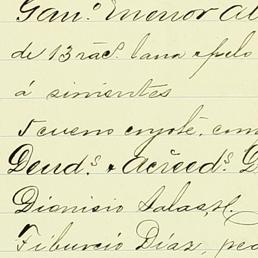 Gan.º menor al
de 13 rac.s lana y pelo
á simientes
5 cueno coyote, com
Deud.s & Acreed.s D
Dionisio Salas, H.
Tiburcio Díaz, peo